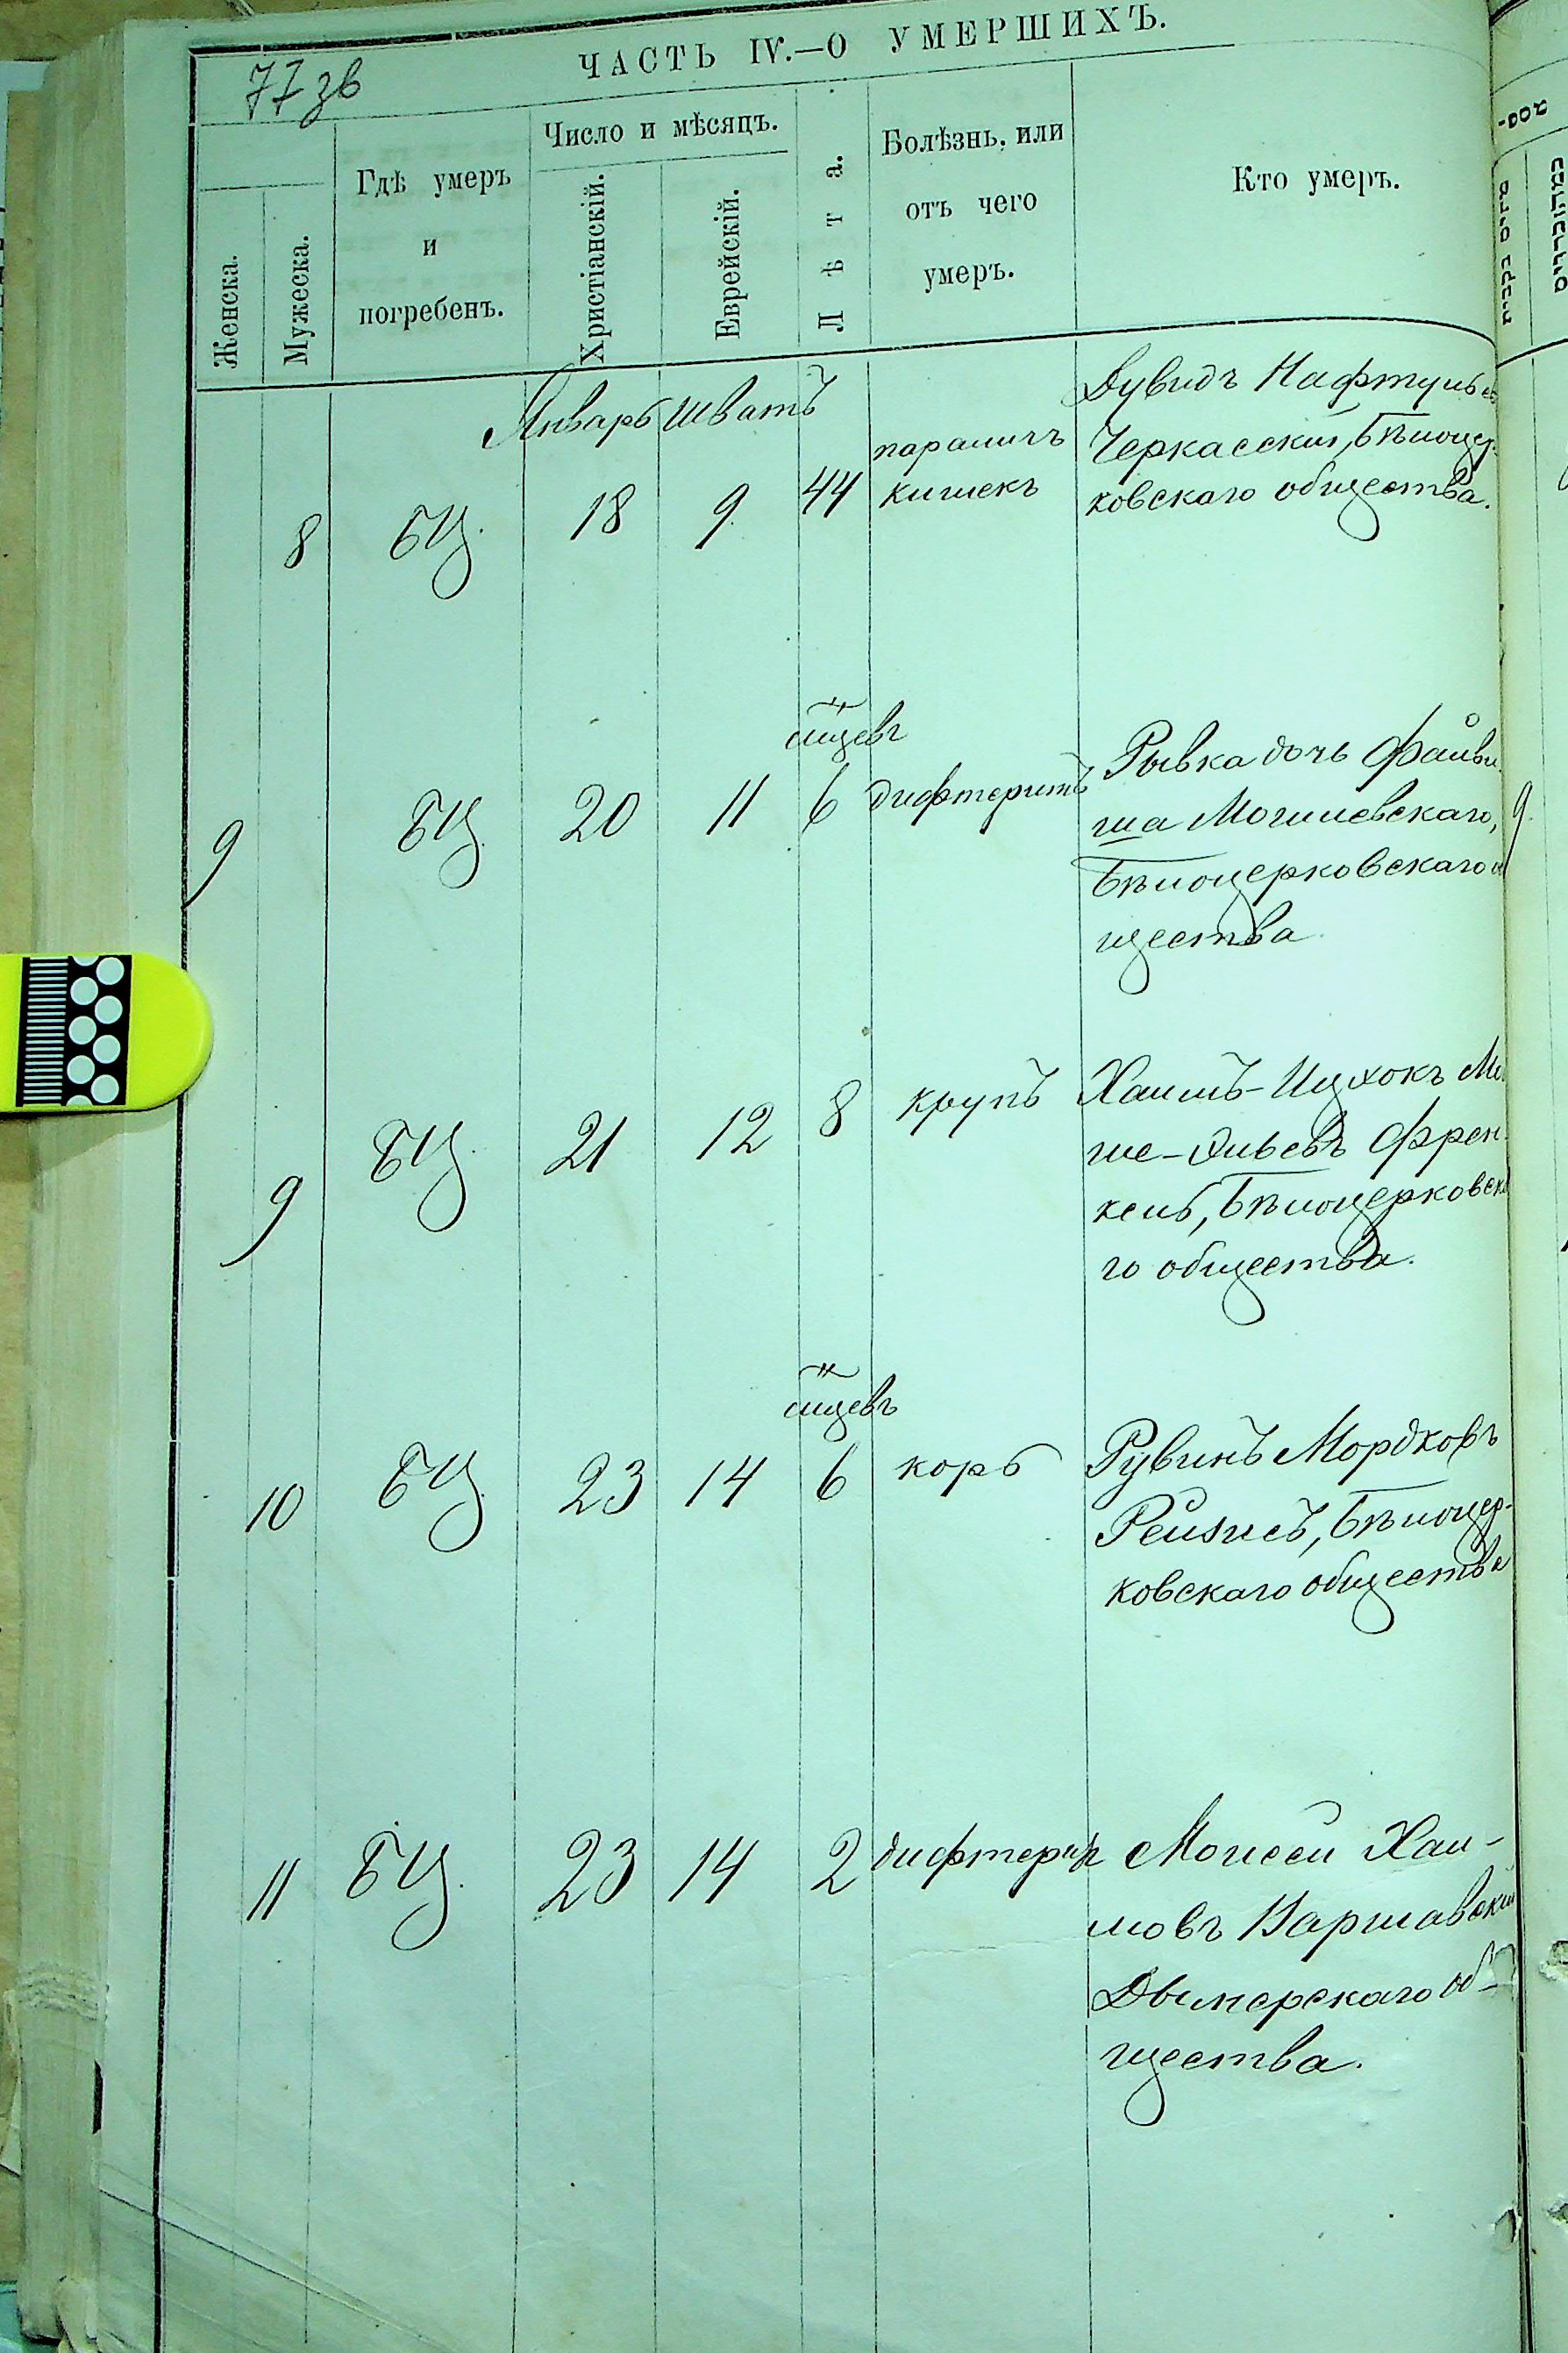 77 зв
ЧАСТЬ IV.—О УМЕРШИХЪ.
Женска.
Мужеска.
Гдѣ умеръ
и
погребенъ.
Число и мѣсяцъ.
Христіанскій.
Еврейскій.
Лѣта.
Болѣзнь, или
отъ чего
умеръ.
Кто умеръ.
Январь Шватъ
8 БЦ. 18 9. 44
параличъ
кишекъ
Дувидъ Нафтульев
Черкасский, Бѣлоцер-
ковскаго общества.
мцевъ
9 БЦ. 20 11 6 дифтеритъ
Рывка дочь Файви-
ша Могилевскаго,
Бѣлоцерковскаго о
щества.
9.
9 БЦ. 21 12 8 крупъ
Хаимъ-Ицхокъ Мо
ше-Эльевъ Френ-
кель, Бѣлоцерковска
го общества.
мцевъ
10 БЦ. 23 14 6 корь
Рувинъ Мордковъ
Рейзисъ, Бѣлоцер-
ковскаго общества
11 БЦ. 23 14 2 дифтеритъ
Моисей Хаи-
мовъ Варшавский
Дымерскаго об-
щества.